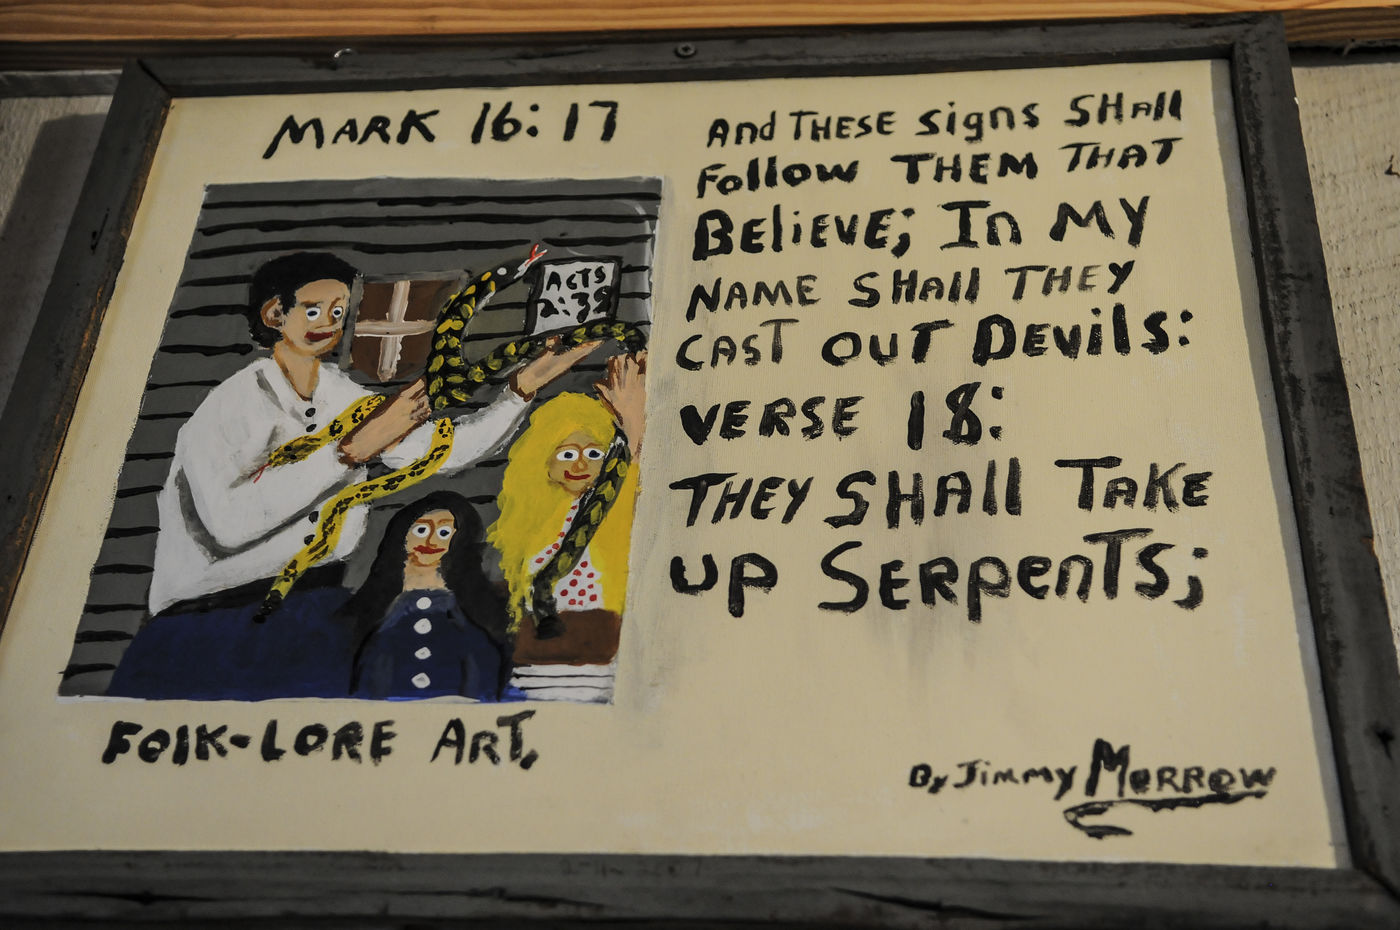 MARK 16:17
And THESE signs SHAll
Follow THEM THAT
BEliEVE; In MY
NAME SHAll THEY
CAST OUT DEvils:
VERSE 18:
THEY SHAll TAKE
UP SERpEnTS;
ACTS
2:38
FolK-LORE ART,
By Jimmy MORROW